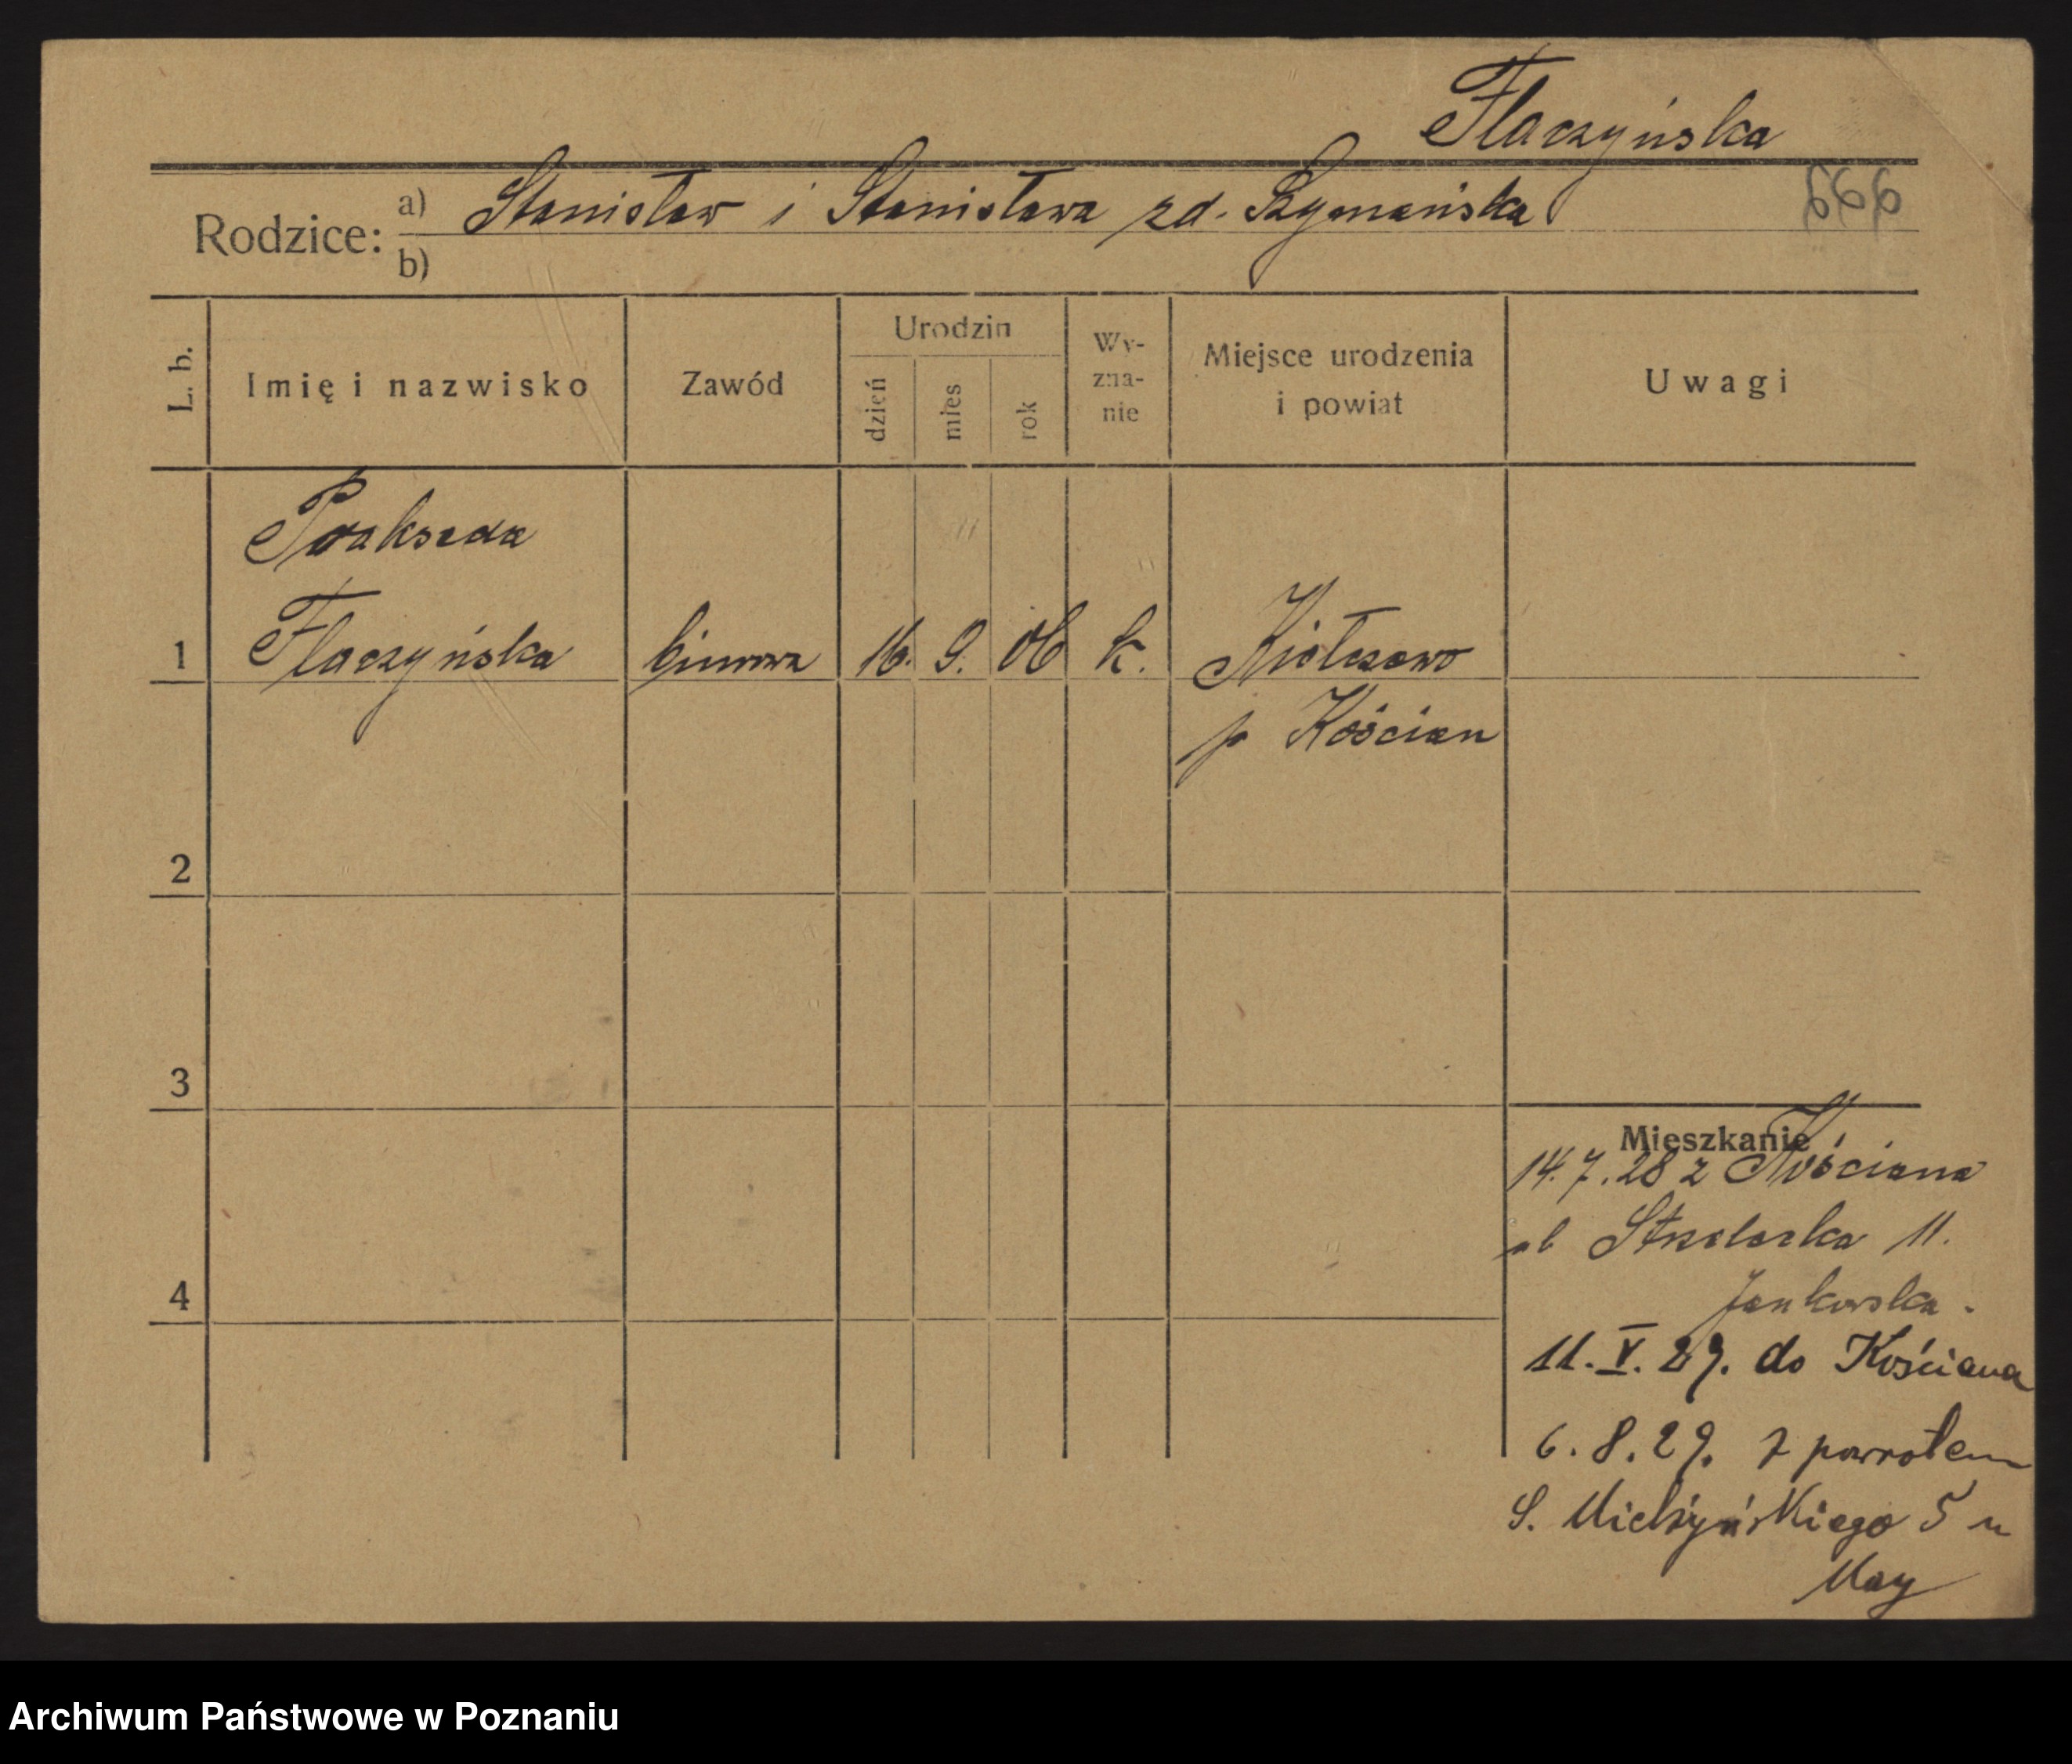 Flaczyńska
Rodzice: a) Stanisław i Stanisława zd. Szymańska
b)
L. b. Imię i nazwisko Zawód Urodzin dzień mies rok Wy-zna-nie Miejsce urodzenia i powiat Uwagi
Prakseda
1 Flaczyńska biurowa 16. 9. 06 k. Kiełczewo
p Kościan
2
3
4
Mieszkanie
14.7.28 z Kościana
ul Strzelecka 11.
Jankowska.
11. V. 29. do Kościana
6. 8. 29. z powrotem
S. Mielżyńskiego 5 u
May
Archiwum Państwowe w Poznaniu